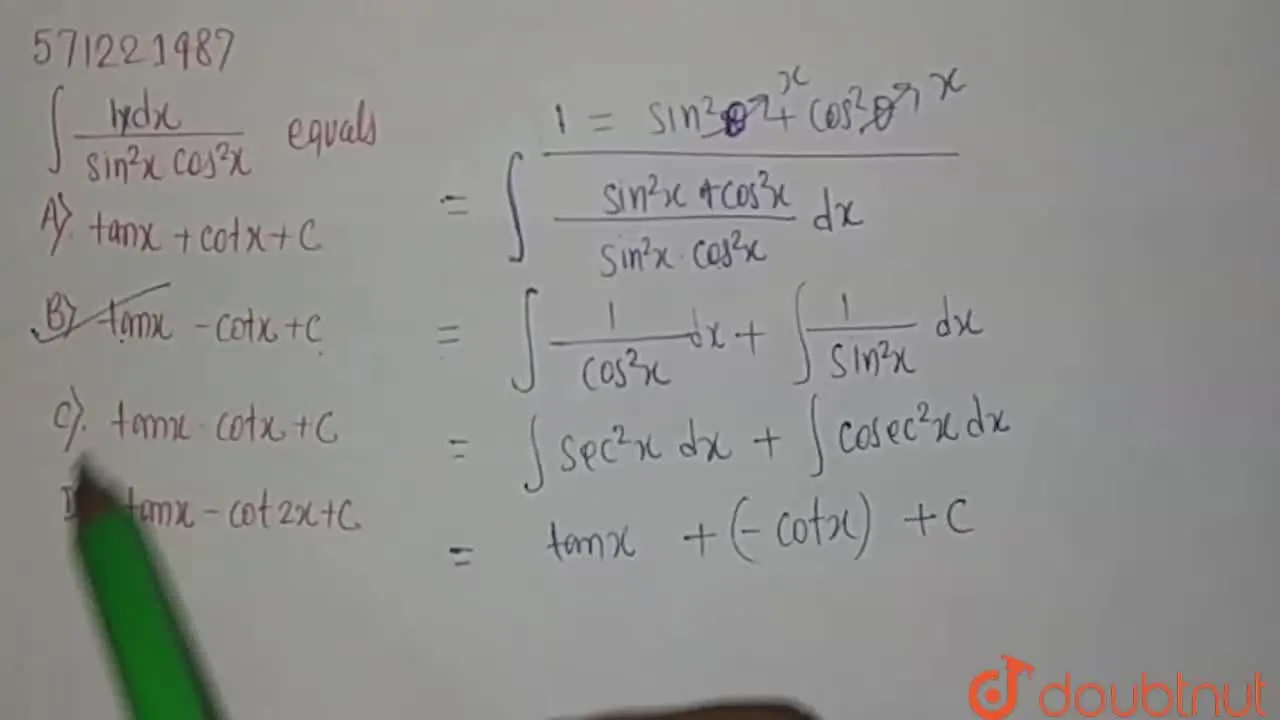 571221987
∫ 1×dx / sin²x cos²x equals
A) tanx + cotx + C
B) tanx - cotx + C
C) tanx · cotx + C
tanx - cot2x + C
1 = sin²θ x + cos²θ x
= ∫ sin²x + cos²x / sin²x · cos²x dx
= ∫ 1 / cos²x dx + ∫ 1 / sin²x dx
= ∫ sec²x dx + ∫ cosec²x dx
= tanx + (- cotx) + C
doubtnut